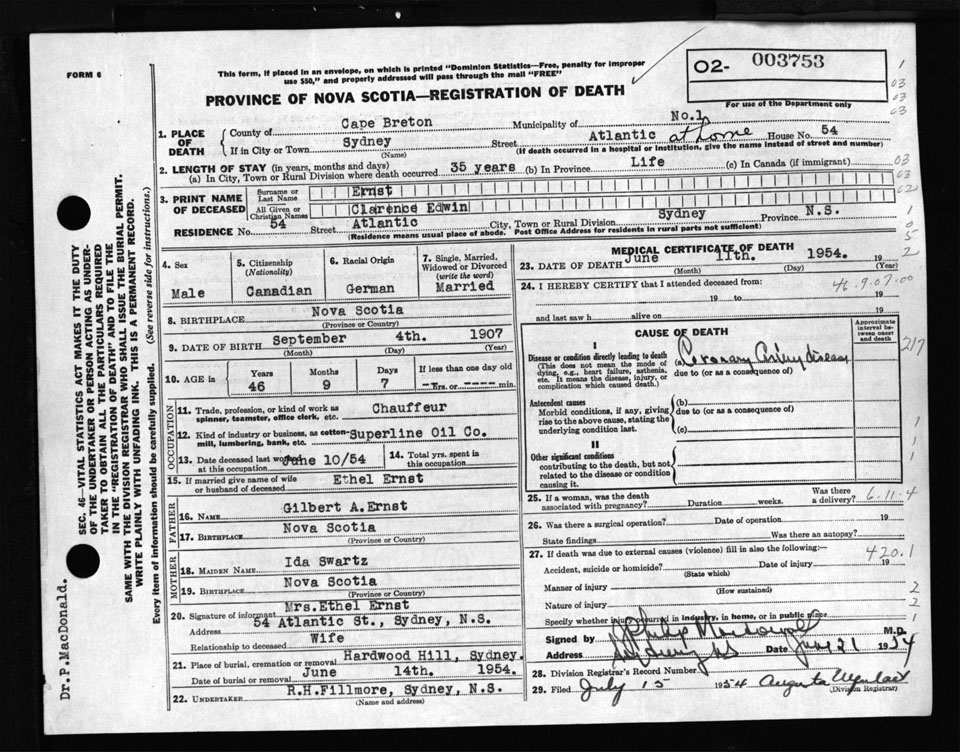 FORM 6
This form, if placed in an envelope, on which is printed "Dominion Statistics—Free, penalty for improper
use $50," and properly addressed will pass through the mail "FREE"
O2- 003753
For use of the Department only
PROVINCE OF NOVA SCOTIA—REGISTRATION OF DEATH
1. PLACE OF DEATH
County of Cape Breton Municipality of No.1
If in City or Town Sydney Street Atlantic at home House No. 54
(Name) (If death occurred in a hospital or institution, give the name instead of street and number)
2. LENGTH OF STAY (in years, months and days)
(a) In City, Town or Rural Division where death occurred 35 years (b) In Province Life (c) In Canada (if immigrant)
3. PRINT NAME OF DECEASED
Surname or Last Name Ernst
All Given or Christian Names Clarence Edwin
RESIDENCE No. 54 Street Atlantic City, Town or Rural Division Sydney Province N.S.
(Residence means usual place of abode. Post Office Address for residents in rural parts not sufficient)
4. Sex
Male
5. Citizenship
(Nationality)
Canadian
6. Racial Origin
German
7. Single, Married,
Widowed or Divorced
(write the word)
Married
8. BIRTHPLACE Nova Scotia
(Province or Country)
9. DATE OF BIRTH September 4th. 1907
(Month) (Day) (Year)
10. AGE in Years Months Days If less than one day old
46 9 7 — Hrs. or ---- min.
OCCUPATION
11. Trade, profession, or kind of work as
spinner, teamster, office clerk, etc. Chauffeur
12. Kind of industry or business, as cotton-
mill, lumbering, bank, etc. Superline Oil Co.
13. Date deceased last worked
at this occupation June 10/54
14. Total yrs. spent in
this occupation
15. If married give name of wife
or husband of deceased Ethel Ernst
FATHER
16. NAME Gilbert A.Ernst
17. BIRTHPLACE Nova Scotia
(Province or Country)
MOTHER
18. MAIDEN NAME Ida Swartz
19. BIRTHPLACE Nova Scotia
(Province or Country)
20. Signature of informant Mrs.Ethel Ernst
Address 54 Atlantic St., Sydney, N.S.
Relationship to deceased Wife
21. Place of burial, cremation or removal Hardwood Hill, Sydney.
Date of burial or removal June 14th. 1954.
22. UNDERTAKER R.H.Fillmore, Sydney, N.S.
(Name and address)
MEDICAL CERTIFICATE OF DEATH
23. DATE OF DEATH June 11th. 1954. 19
(Month) (Day) (Year)
24. I HEREBY CERTIFY that I attended deceased from:
46.9.07.00
19 to 19
and last saw h alive on 19
CAUSE OF DEATH
Approximate interval between onset and death
I
Disease or condition directly leading to death
(This does not mean the mode of
dying, e.g., heart failure, asthenia,
etc. It means the disease, injury, or
complication which caused death.)
(a) Coronary Artery disease
due to (or as a consequence of)
217
Antecedent causes
Morbid conditions, if any, giving
rise to the above cause, stating the
underlying condition last.
(b)
due to (or as a consequence of)
(c)
II
Other significant conditions
contributing to the death, but not
related to the disease or condition
causing it.
25. If a woman, was the death
associated with pregnancy? Duration weeks. Was there
a delivery?
6.11.4
26. Was there a surgical operation? Date of operation 19
State findings Was there an autopsy?
27. If death was due to external causes (violence) fill in also the following:—
420.1
Accident, suicide or homicide? Date of injury 19
(State which)
Manner of injury
(How sustained)
Nature of injury
Specify whether injury occurred in industry, in home, or in public place
Signed by Philip MacDonald M.D.
Address Sydney NS Date June 21 1954
28. Division Registrar's Record Number
29. Filed July 15 1954
(Division Registrar)
SEC. 46—VITAL STATISTICS ACT MAKES IT THE DUTY
OF THE UNDERTAKER OR PERSON ACTING AS UNDER-
TAKER TO OBTAIN ALL THE PARTICULARS REQUIRED
IN THE "REGISTRATION OF DEATH" AND TO FILE THE
SAME WITH THE DIVISION REGISTRAR WHO SHALL ISSUE THE BURIAL PERMIT.
WRITE PLAINLY WITH UNFADING INK. THIS IS A PERMANENT RECORD.
Every item of information should be carefully supplied. (See reverse side for instructions.)
Dr.P.MacDonald.